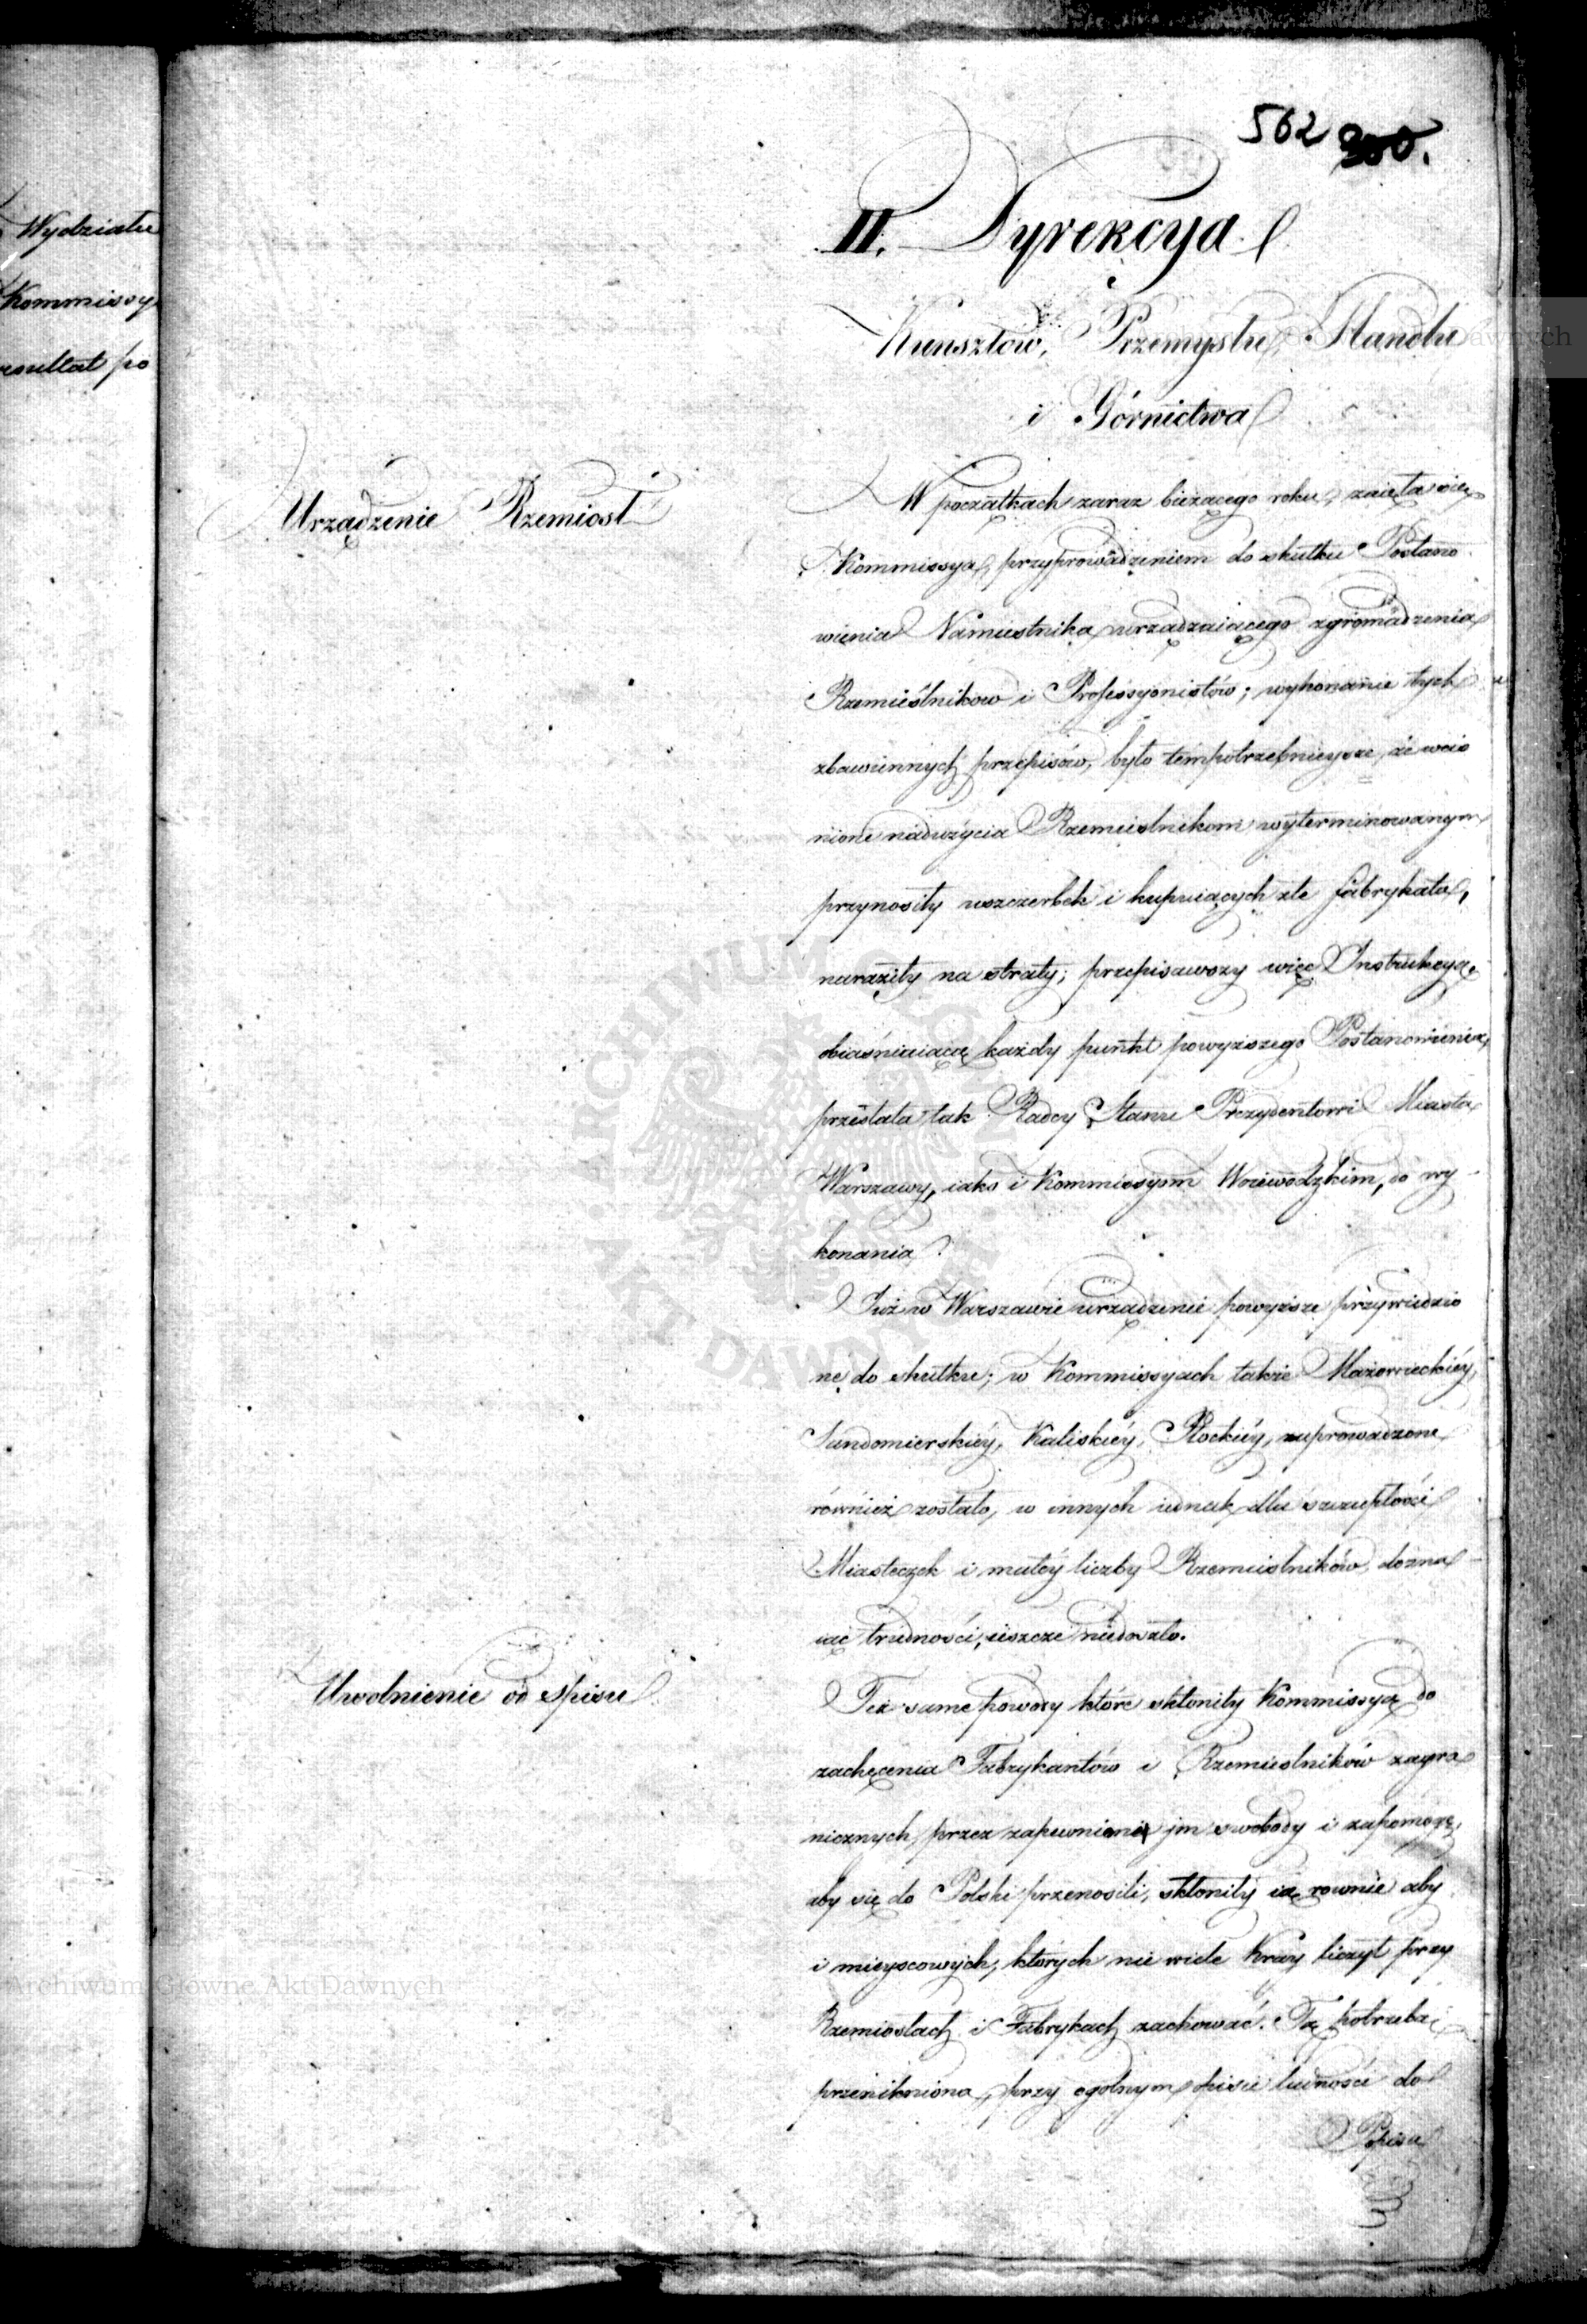 562 300.
Wydziału
Kommissy
rezultat po
II. Dyrekcya
Kunsztów, Przemysłu, Handlu
i Górnictwa
Urządzenie Rzemiosł
W początkach zaraz bieżącego roku, zaięła się
Kommissya, przyprowadzeniem do skutku Postano
wienia Namiestnika urządzaiącego zgromadzenia
Rzemieślnikow i Professyonistów; wykonanie tych
zbawiennych przepisów, było tém potrzebnieysze, że wciś
nione nadużycia Rzemieslnikom wyterminowanym
przynosiły uszczerbek i kupuiących złe fabrykata,
naraziły na straty; przepisawszy więc Instrukcyą
obiaśniaiącą każdy punkt powyższego Postanowienia,
przesłała tak Radcy Stanu Prezydentowi Miasta
Warszawy, iako i Kommissyom Woiewodzkim, do wy
konania.
Już w Warszawie urządzenie powyższe przywiedzio
ne do skutku; w Kommissyach także Mazowieckiéy,
Sandomierskiéy, Kaliskiéy, Płockiéy, zaprowadzone
również zostało, w innych iednak dla szczupłości
Miasteczek i małéy liczby Rzemieslników, dozna
iąc trudności, ieszcze niedoszło.
Uwolnienie od spisu
Też same powody które skłoniły Kommissyą do
zachęcenia Fabrykantów i Rzemieslników zagra
nicznych, przez zapewnienie jm swobody i zapomogę,
aby się do Polski przenosili, skłoniły ią rownie aby
i mieyscowych, których nie wiele Kray liczył przy
Rzemiosłach i Fabrykach zachować. Tą potrzebą
przenikniona, przy ogolnym spisie ludności do
Popisu
Archiwum Główne Akt Dawnych
ARCHIWUM GŁÓWNE AKT DAWNYCH